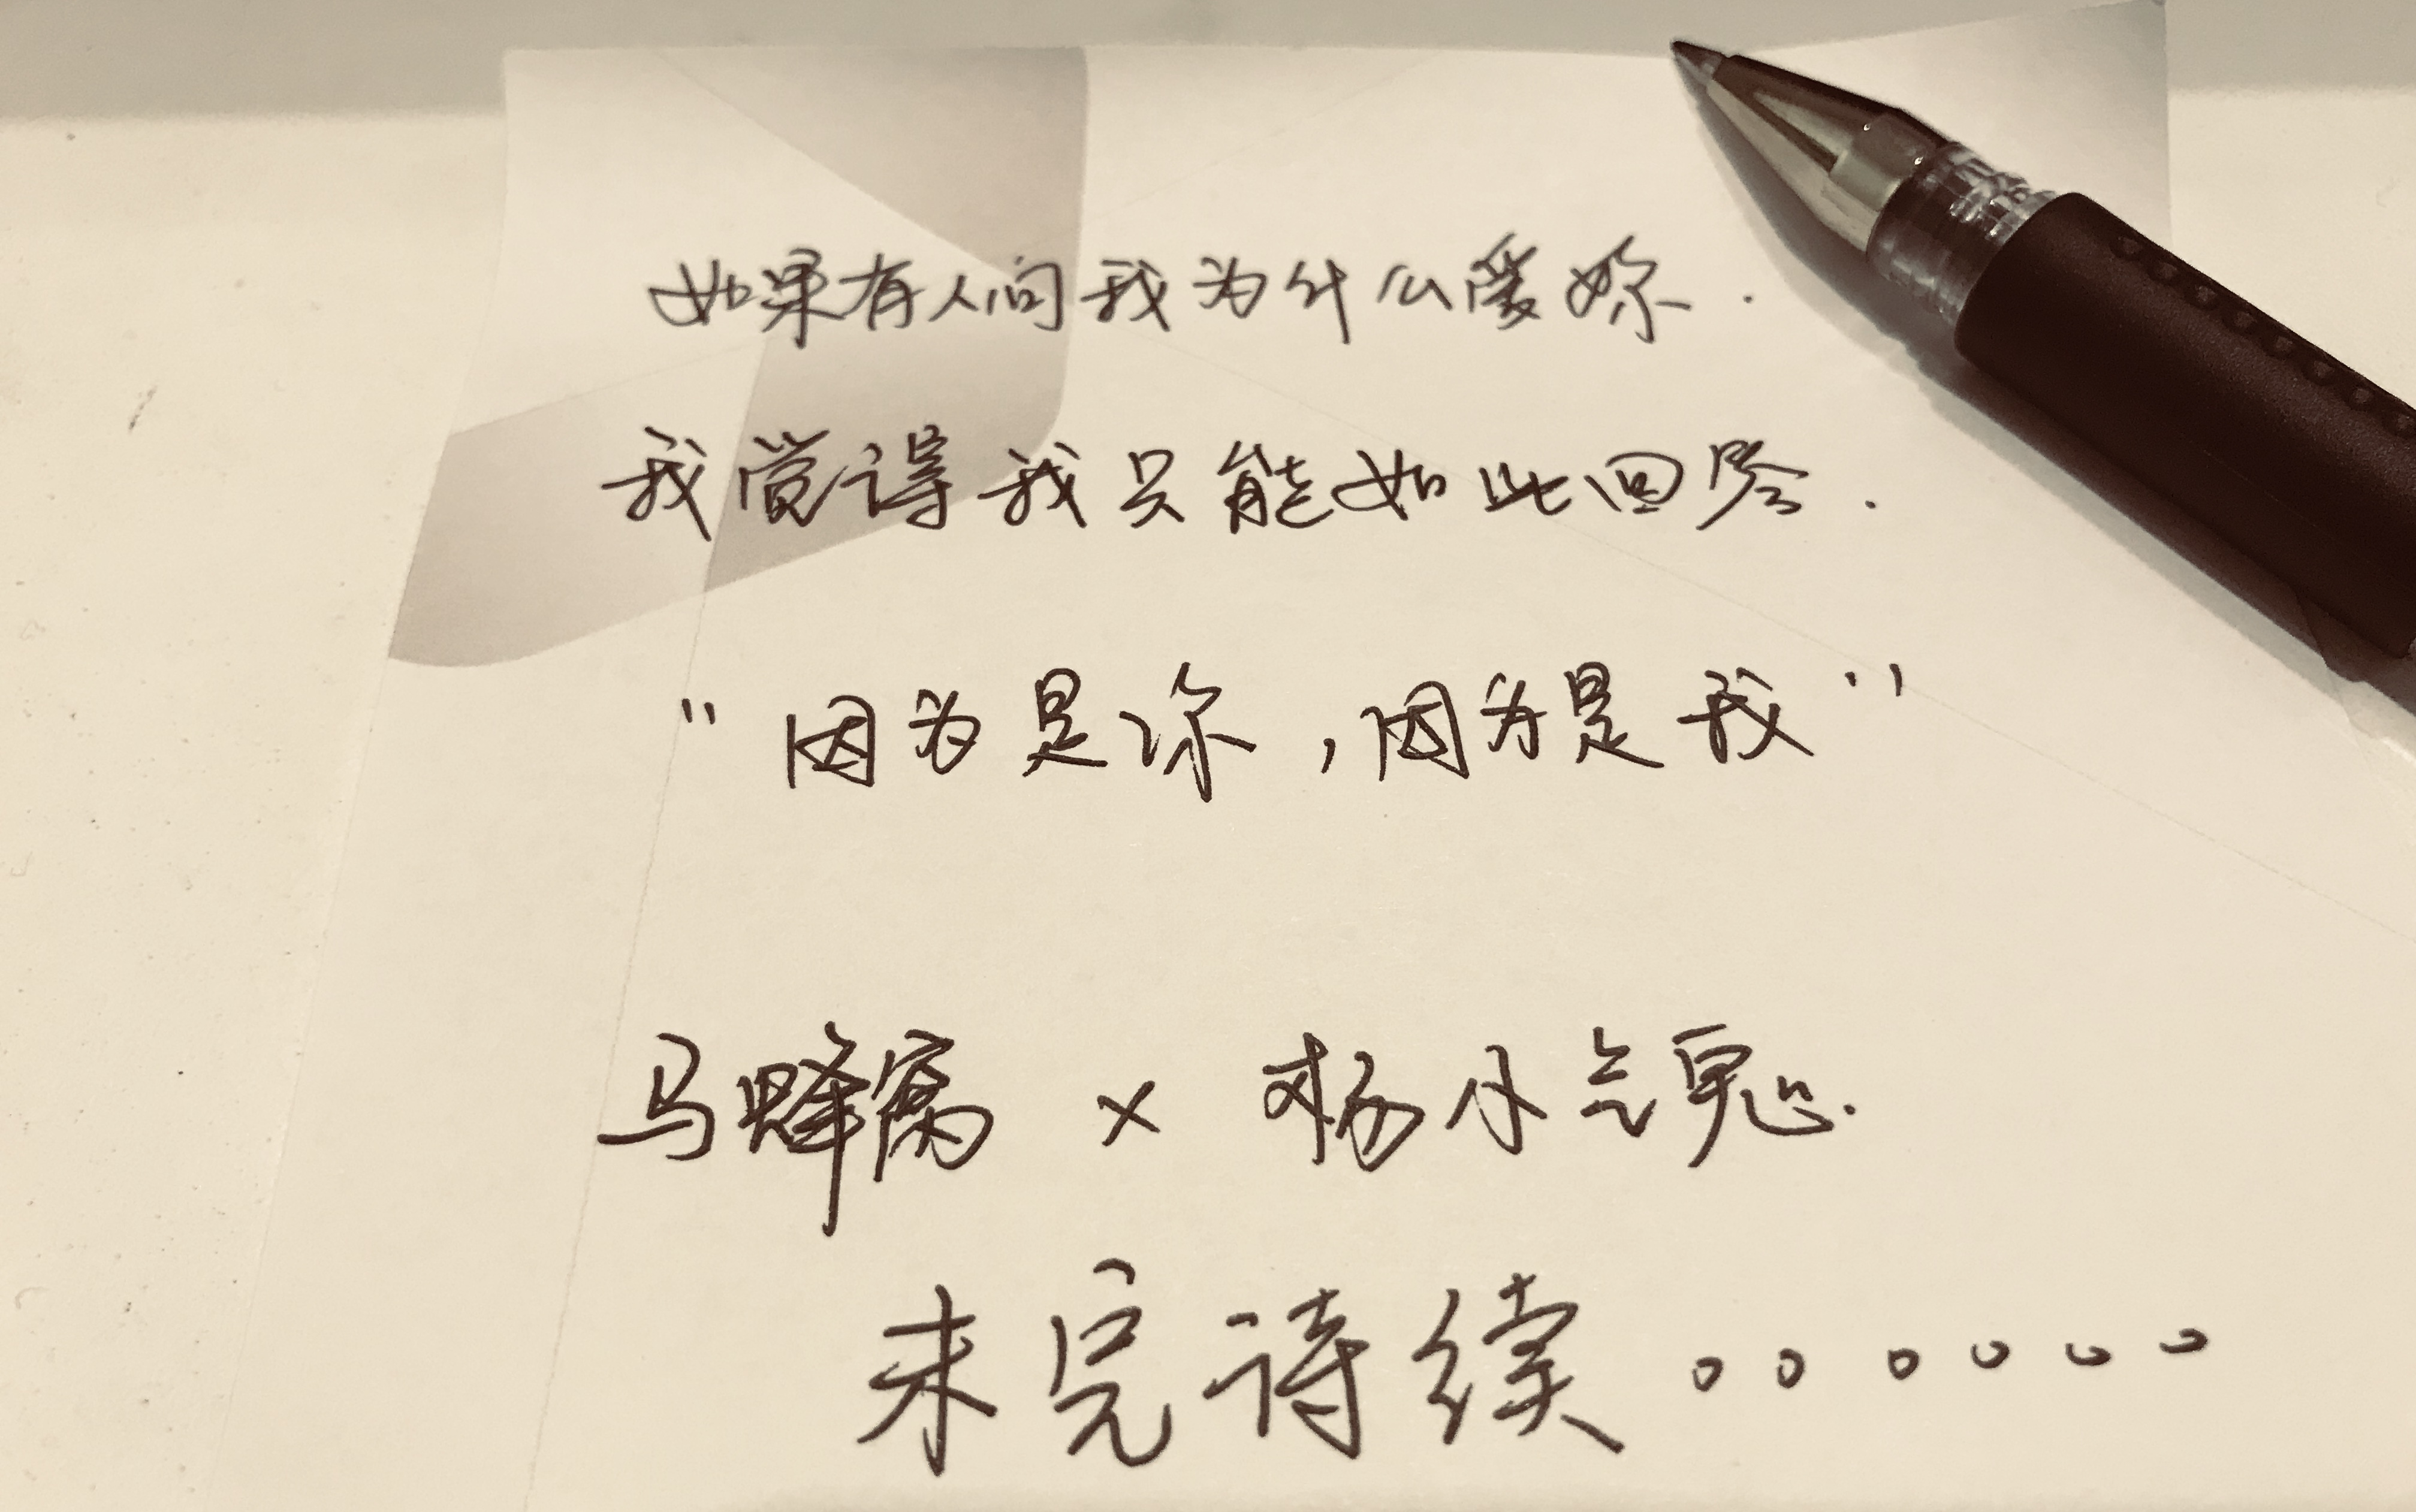 如果有人问我为什么爱妳.
我觉得我只能如此回答.
"因为是你,因为是我"
马蜂窝 × 杨小
未完待续。。。。。。